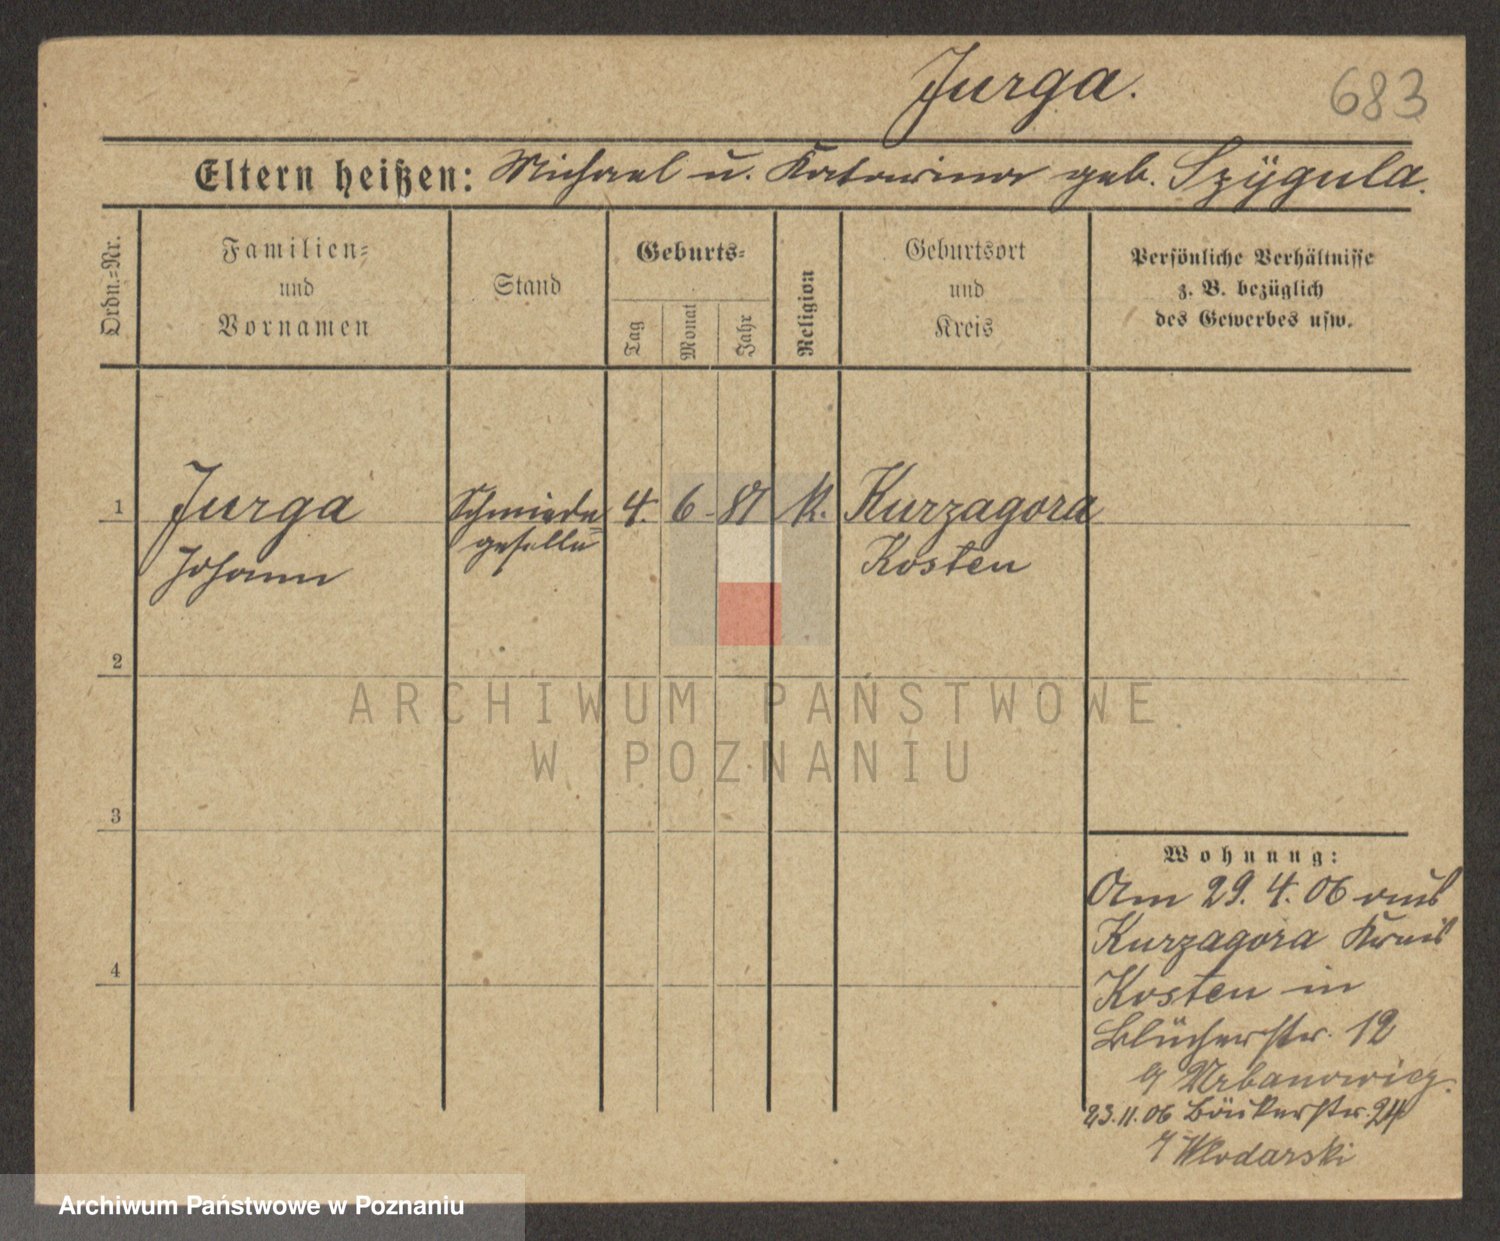 Jurga.
683
Eltern heißen: Michael u. Katarina geb. Szÿgula.
Ordn.=Nr.
Familien=
und
Vornamen
Stand
Geburts=
Tag
Monat
Jahr
Religion
Geburtsort
und
Kreis
Persönliche Verhältnisse
z. B. bezüglich
des Gewerbes usw.
1
Jurga
Johann
Schmiede
geselle
4. 6 - 81
K.
Kurzagora
Kosten
2
3
4
Wohnung:
Am 29. 4. 06 aus
Kurzagora Kreis
Kosten in
Blücherstr. 12
Urbanowicz.
23.11.06 Bäckerstr. 24
Wlodarski
ARCHIWUM PAŃSTWOWE
W POZNANIU
Archiwum Państwowe w Poznaniu